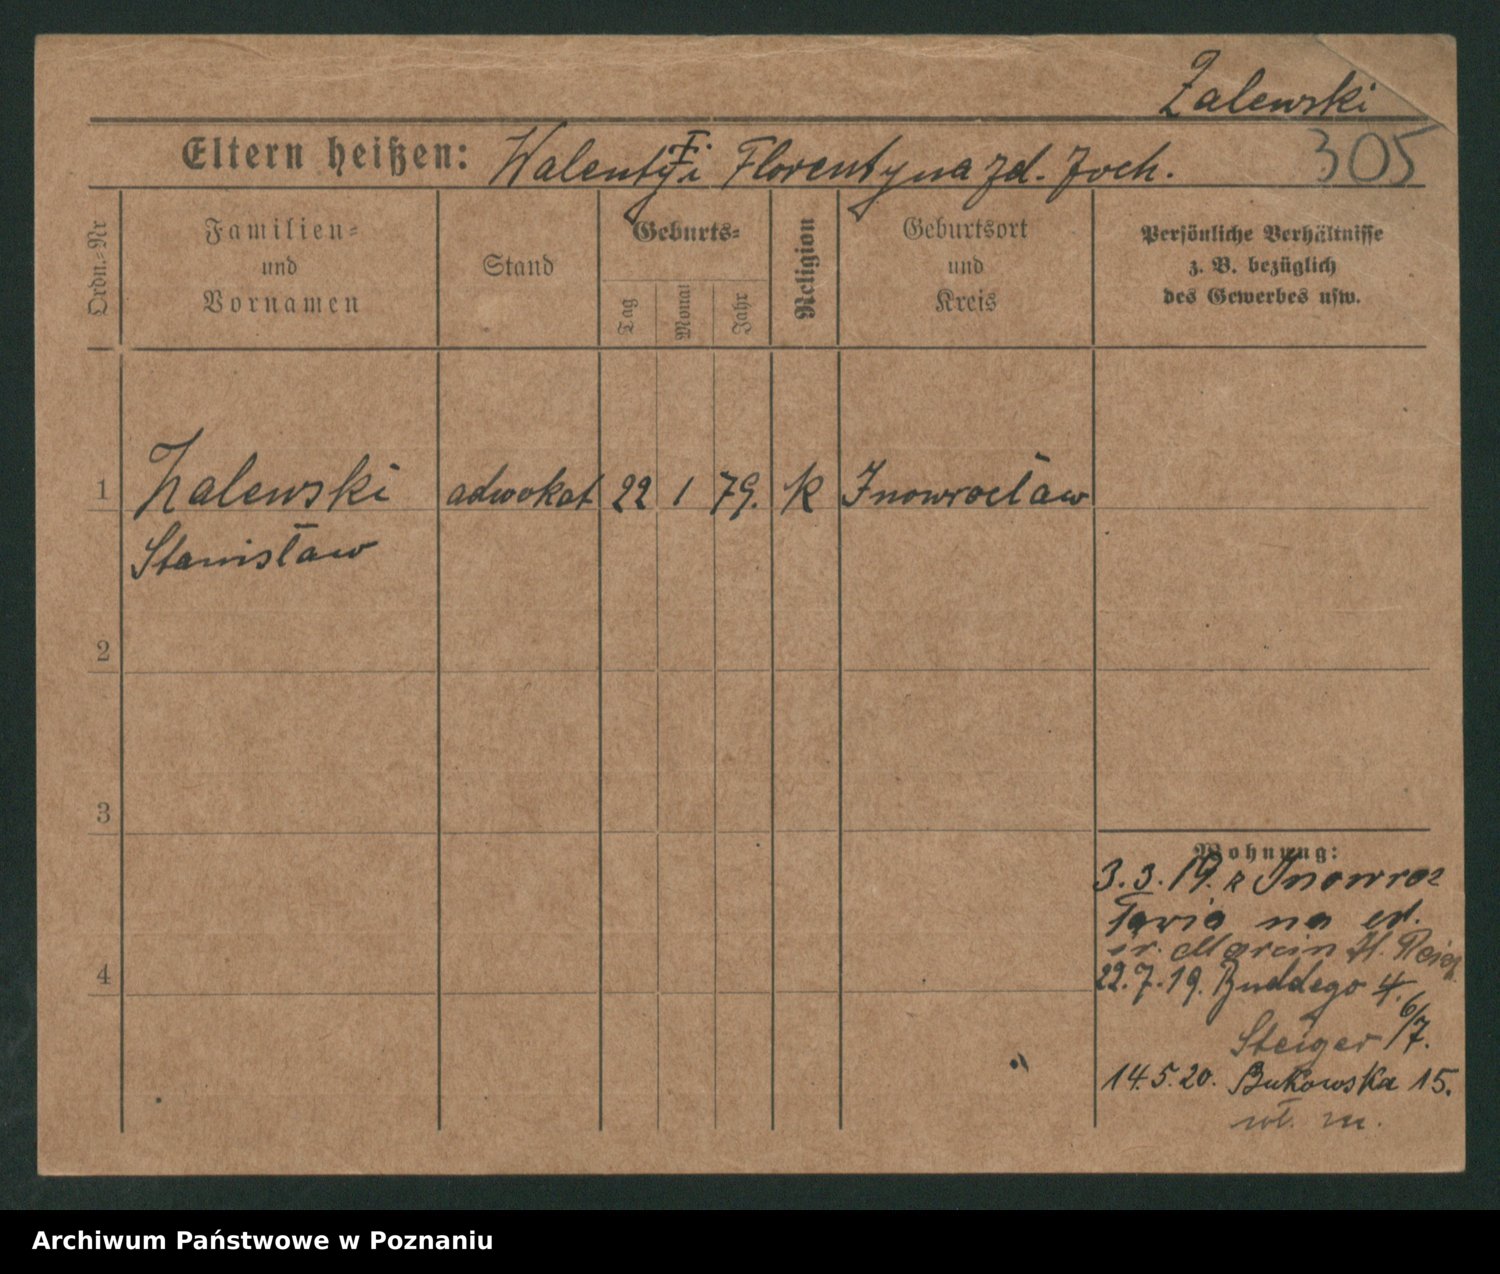 Zalewski
305
Eltern heißen: Walenty i Florentyna zd. Joch.
Ordn.-Nr
Familien-
und
Vornamen
Stand
Geburts-
Tag
Monat
Jahr
Religion
Geburtsort
und
Kreis
Persönliche Verhältnisse
z. B. bezüglich
des Gewerbes usw.
1 Zalewski adwokat 22 1 79. k Inowrocław
Stanisław
2
3
4
Wohnung:
3.3.19. z Inowroc
ławia na
św. Marcin
22.7.19. Buddego 4.
Steiger 6/7.
14.5.20. Bukowska 15.
wł. m.
Archiwum Państwowe w Poznaniu